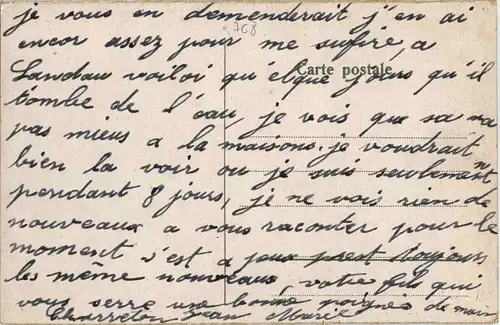 je vous en demenderait j'en ai
encor assez pour me sufire, a
Landau voiloi qu'élque jours qu'il
Carte postale
tombe de l'eau, je vois que sa va
pas mieus a la maisons. je voudrait
bien la voir ou je suis seulement
pendant 8 jours, je ne vois rien de
nouveaux a vous raconter pour le
moment s'est a toujours
les meme nouveaux, votre fils qui
vous serre une bonne poignée de main
Charreton Jean Marie